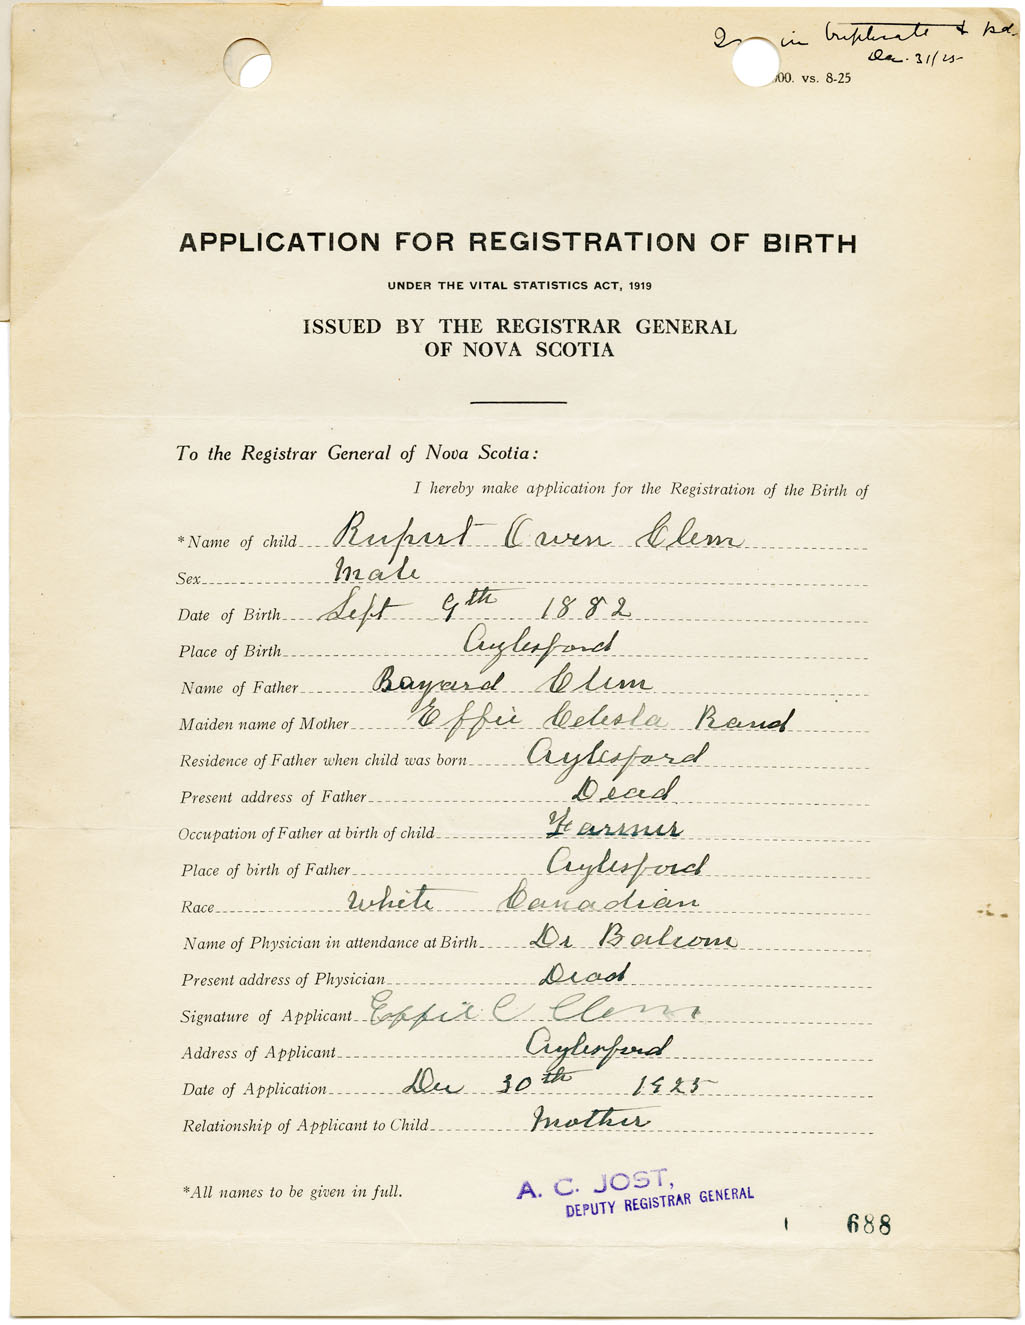 in triplicate & pd.
Dec. 31/25
00. vs. 8-25
APPLICATION FOR REGISTRATION OF BIRTH
UNDER THE VITAL STATISTICS ACT, 1919
ISSUED BY THE REGISTRAR GENERAL
OF NOVA SCOTIA
To the Registrar General of Nova Scotia:
I hereby make application for the Registration of the Birth of
*Name of child Rupert Owen Clem
Sex Male
Date of Birth Sept 9th 1882
Place of Birth Aylesford
Name of Father Bayard Clem
Maiden name of Mother Effie Celesta Rand
Residence of Father when child was born Aylesford
Present address of Father Dead
Occupation of Father at birth of child Farmer
Place of birth of Father Aylesford
Race White Canadian
Name of Physician in attendance at Birth Dr Balcom
Present address of Physician Dead
Signature of Applicant Effie C Clem
Address of Applicant Aylesford
Date of Application Dec 30th 1925
Relationship of Applicant to Child Mother
*All names to be given in full.
A. C. JOST,
DEPUTY REGISTRAR GENERAL
688